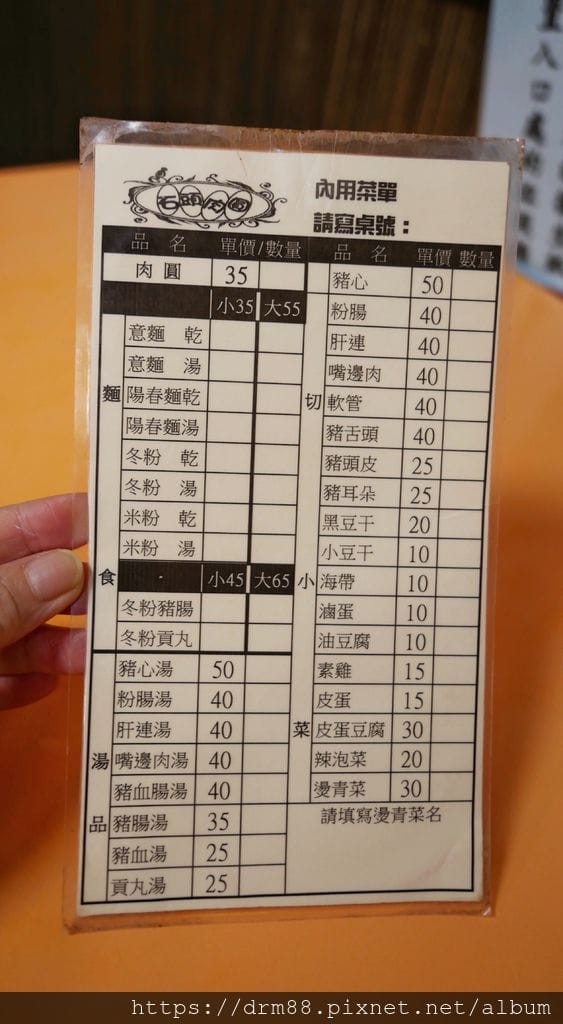 石頭肉圓
內用菜單
請寫桌號：
品 名 單價/數量
肉 圓 35
小35 大55
麵食
意麵 乾
意麵 湯
陽春麵乾
陽春麵湯
冬粉 乾
冬粉 湯
米粉 乾
米粉 湯
小45 大65
冬粉豬腸
冬粉貢丸
湯品
豬心湯 50
粉腸湯 40
肝連湯 40
嘴邊肉湯 40
豬血腸湯 40
豬腸湯 35
豬血湯 25
貢丸湯 25
品 名 單價 數量
切小菜
豬心 50
粉腸 40
肝連 40
嘴邊肉 40
軟管 40
豬舌頭 40
豬頭皮 25
豬耳朵 25
黑豆干 20
小豆干 10
海帶 10
滷蛋 10
油豆腐 10
素雞 15
皮蛋 15
皮蛋豆腐 30
辣泡菜 20
燙青菜 30
請填寫燙青菜名
https://drm88.pixnet.net/album